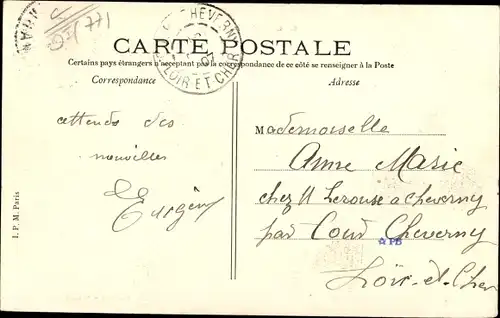 771
CHEVERNY
LOIR-ET-CHER
07
CARTE POSTALE
Certains pays étrangers n'acceptant pas la correspondance de ce côté se renseigner à la Poste
Correspondance
Adresse
attends des
nouvelles
de
Mademoiselle
Anne Marie
chez M Lerouse a cheverny
par Cour Cheverny
PB
Loir-et-Cher
I. P. M. Paris